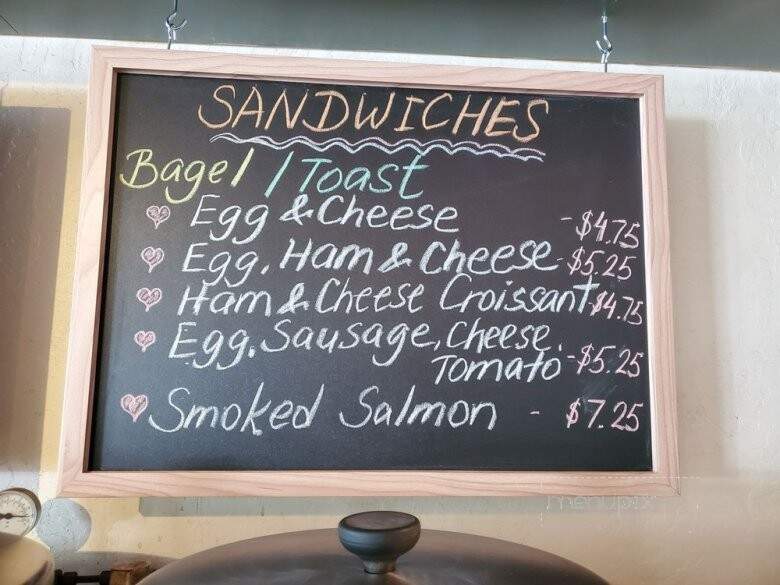 SANDWICHES
Bagel / Toast
Egg & Cheese - $4.75
Egg, Ham & Cheese - $5.25
Ham & Cheese Croissant - $4.75
Egg, Sausage, Cheese,
Tomato - $5.25
Smoked Salmon - $7.25